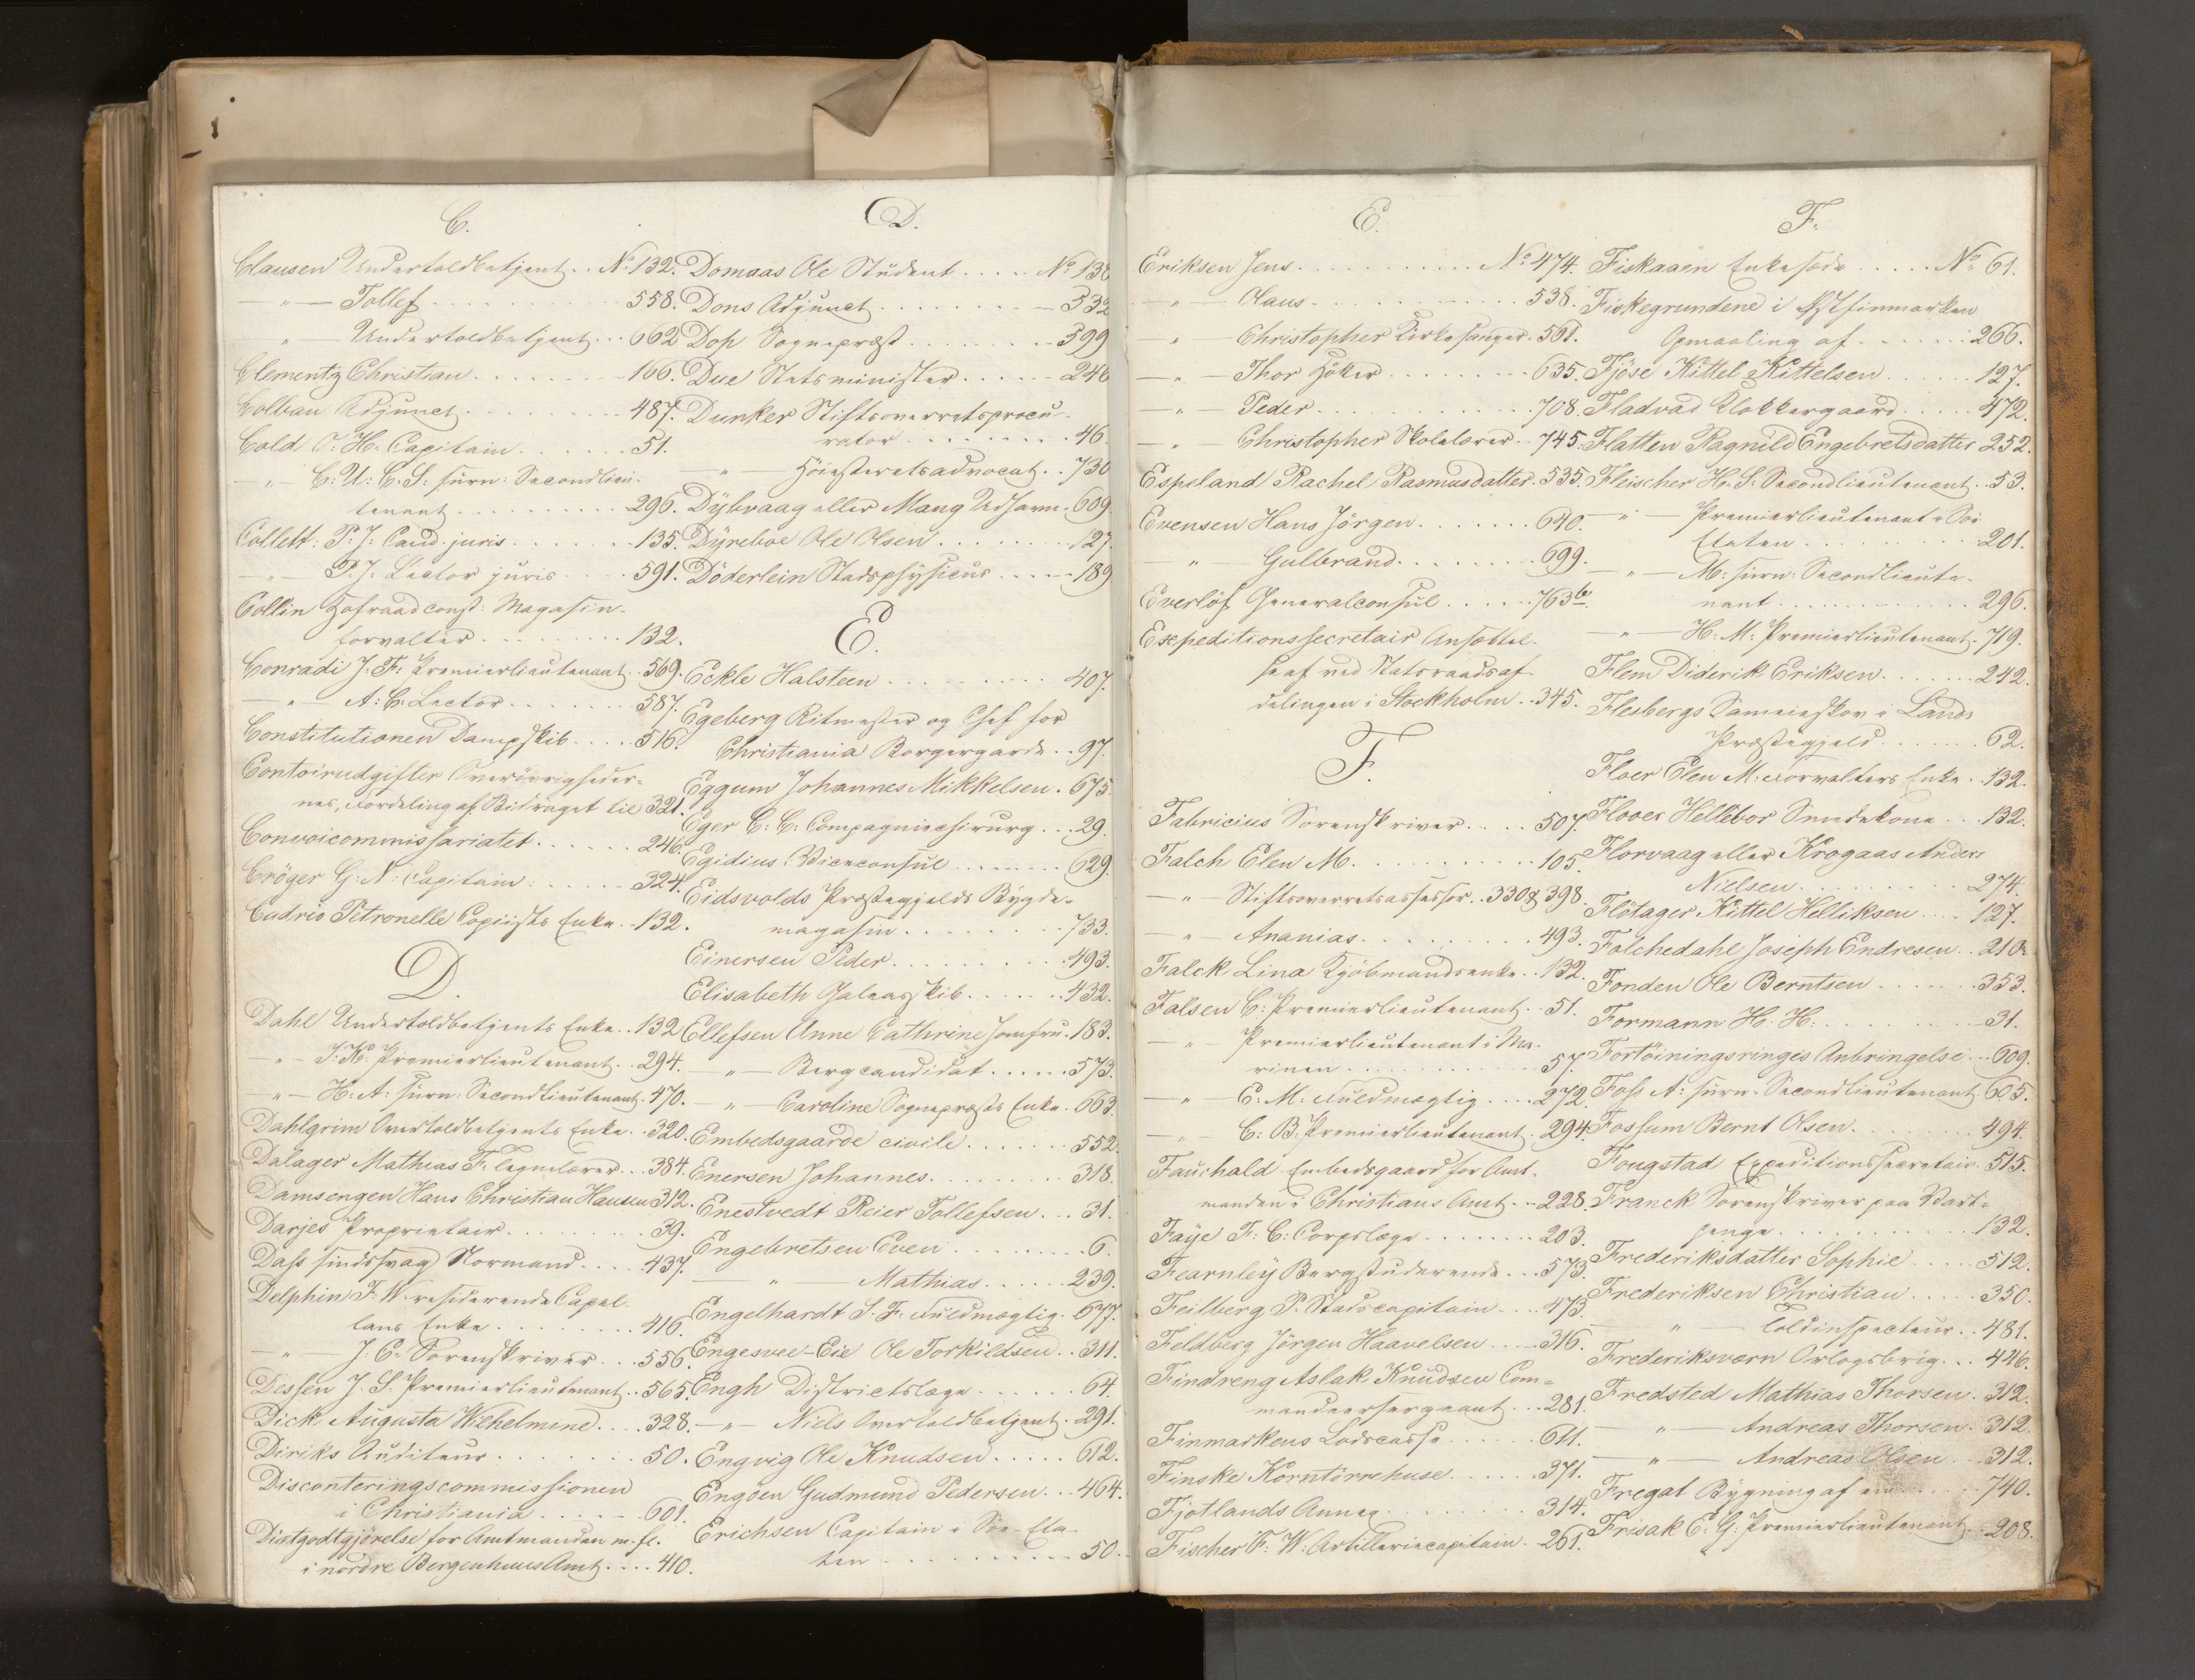 C.
Clausen Undertoldbetjent . . No 132.
— " — Tollef . . . 558.
" — Undertoldbetjent . . . 662
Clementz Christian . . . 166.
Colban Adjunct . . . 487.
Cold O: H: Capitain . . . 51.
— " — C: U: C. S: surn: Secondlieu-
tenant . . . 296.
Collett: P. J: Cand. juris . . . 135.
" P. J: Lector juris . . . 591.
Collin Hofraad const: Magasin-
forvalter . . . 132.
Conradi J. F: Premierlieutenant . . 569.
— " — A: C. Lector . . . 587.
Constitutionen Dampskib . . . 516.
Contoirudgifter Overövrigheder-
nes, Fordeling af Bidraget til 321.
Convoicommissariatet . . . 246.
Cröger G: N: Capitain . . . 324.
Cudrio Petronelle Copiists Enke . . 132.
D.
Dahl Undertoldbetjents Enke . . 132
— " — J: K: Premierlieutenant . . 294.
— " — H: A: surn: Secondlieutenant . 470.
Dahlgrim Overtoldbetjents Enke . . 320.
Dalager Mathias F. Tegnelærer . . . 384.
Damsengen Hans Christian Hansen 312.
Darjes Proprietair . . . 39.
Dass sindssvag Normand . . . 437.
Delphin F: W. residerende Capel-
lans Enke . . . 416.
— " — J. C. Sorenskriver . . . 556.
Dessen J. S. Premierlieutenant . . 565.
Dick Augusta Wilhelmine . . . 328.
Diriks Auditeur . . . 50.
Disconteringscommissionen
i Christiania . . . 601.
Diætgodtgjörelse for Amtmanden m. fl.
i nordre Bergenhuus Amt . . . 410.
D.
Domaas Ole Student . . . No 138
Dons Adjunct . . . 332
Dop Sognepræst . . . 399
Due Statsminister . . . 246
Dunker Stiftsoverretsprocu-
rator . . . 46.
— " — Höiesteretsadvocat . . 730
Dÿbvaag eller Mang Udhavn . 609
Dÿreboe Ole Olsen . . . 127.
Döderlein Stadsphÿsicus . . . 189
E.
Eckle Halsteen . . . 407.
Egeberg Ritmester og Chef for
Christiania Borgergarde . . 97.
Eggum Johannes Mikkelsen . 675
Eger C: C: Compagniechirurg . . . 29.
Egidius Viceconsul . . . 629.
Eidsvolds Præstegjelds Bÿgde-
magasin . . . 733.
Einersen Peder . . . 493.
Elisabeth Galeasskib . . . 432.
Ellefsen Anne Cathrine Jomfru . 183.
— " — Bergcandidat . . . 573.
— " — Caroline Sognepræsts Enke . 663.
Embedsgaarde civile . . . 552.
Enersen Johannes . . . 318.
Enestvedt Reier Tollefsen . . . 31.
Engebretsen Even . . . 6.
— " Mathias . . . 239.
Engelhardt S. F. Fuldmægtig . 677.
Engesvee-Eie Ole Torkildsen . . 311.
Engh Districtslæge . . . 64.
— " — Niels Overtoldbetjent . 291.
Engvig Ole Knudsen . . . 612.
Engöen Gudmund Pedersen . . . 464.
Erichsen Capitain i Söe-Eta-
ten . . . 50.
E.
Eriksen Jens . . . No 474.
— " — Claus . . . 538.
— " — Christopher Kirkesanger . 561.
— " — Thor Höker . . . 635.
— " — Peder . . . 708.
— " — Christopher Skolelærer . . 745.
Espeland Rachel Rasmusdatter . 535.
Evensen Hans Jörgen . . . 640.
— " — Gulbrand . . . 699.
Everlöf Generalconsul . . . 763 b.
Expeditionssecretair Ansættel-
se af ved Statsraadsaf-
delingen i Stockholm . . 345.
F.
Fabricius Sorenskriver . . . 507.
Falch Elen M. . . . 105.
— " — Stiftsoverretsassessor . . 330 & 398.
— " — Ananias . . . 493.
Falck Lina Kjöbmandsenke . . 132.
Falsen C: Premierlieutenant . . 51.
— " — Premierlieutenant i Ma-
rinen . . . 57.
— " — E: M: Fuldmægtig . . . 272.
— " — C: B: Premierlieutenant . 294.
Fauchald Embedsgaard for Amt-
manden i Christians Amt . . . 228.
Faÿe F: C: Corpslæge . . . 203.
Fearnleÿ Bergstuderende . . . 573.
Feilberg P. Stadscapitain . . . 473.
Feldberg Jörgen Haavelsen . . . 316.
Findreng Aslak Knudsen Com-
mandeersergeant . . . 281.
Finmarkens Lodscasse . . . 611.
Finske Korntörrehuse . . . 371.
Fjotlands Annex . . . 314.
Fischer F: W: Artilleriecapitain . 261.
F.
Fiskaaen Enkesæde . . . No 61.
Fiskegrundene i Östfinmarken
Opmaaling af . . . 266.
Fjöse Kittel Kittelsen . . . 127.
Fladvad Klokkergaard . . . 472.
Flatten Ragnild Engebretsdatter 252.
Fleischer H. S. Secondlieutenant . . 53.
— " — Premierlieutenant i Söe
Etaten . . . 201.
— " — M: surn: Secondlieute-
nant . . . 296.
— " — H: M: Premierlieutenant . 719.
Flem Diderik Eriksen . . . 242.
Flesbergs Sameieskov i Lands
Præstegjeld . . . 62.
Floer Elen M: Forvalters Enke . 132.
Floves Hellebor Smedekone . . . 132.
Florvaag eller Krogaas Anders
Nielsen . . . 274.
Flötager Kittel Helliksen . . . 127.
Folchedahl Joseph Endresen . . 210.
Fonden Ole Berntsen . . . 353.
Formann H. H: . . . 31.
Fortöiningsringes Anbringelse . . 609.
Foss A: surn. Secondlieutenant . 605.
Fossum Bernt Olsen . . . 494.
Fougstad Expeditionssecretair . 515.
Franck Sorenskriver paa Vart-
penge . . . 132.
Frederiksdatter Sophie . . . 512.
Frederiksen Christian . . . 350.
— " — Toldinspecteur . . 481.
Frederiksværn Orlogsbrig . . . 426.
Fredsted Mathias Thorsen . 312.
" — Andreas Thorsen . 312.
— " — Andreas Olsen . . . 312.
Fregat Bÿgning af en . . . 740.
Frisak E: G: Premierlieutenant . . 208.